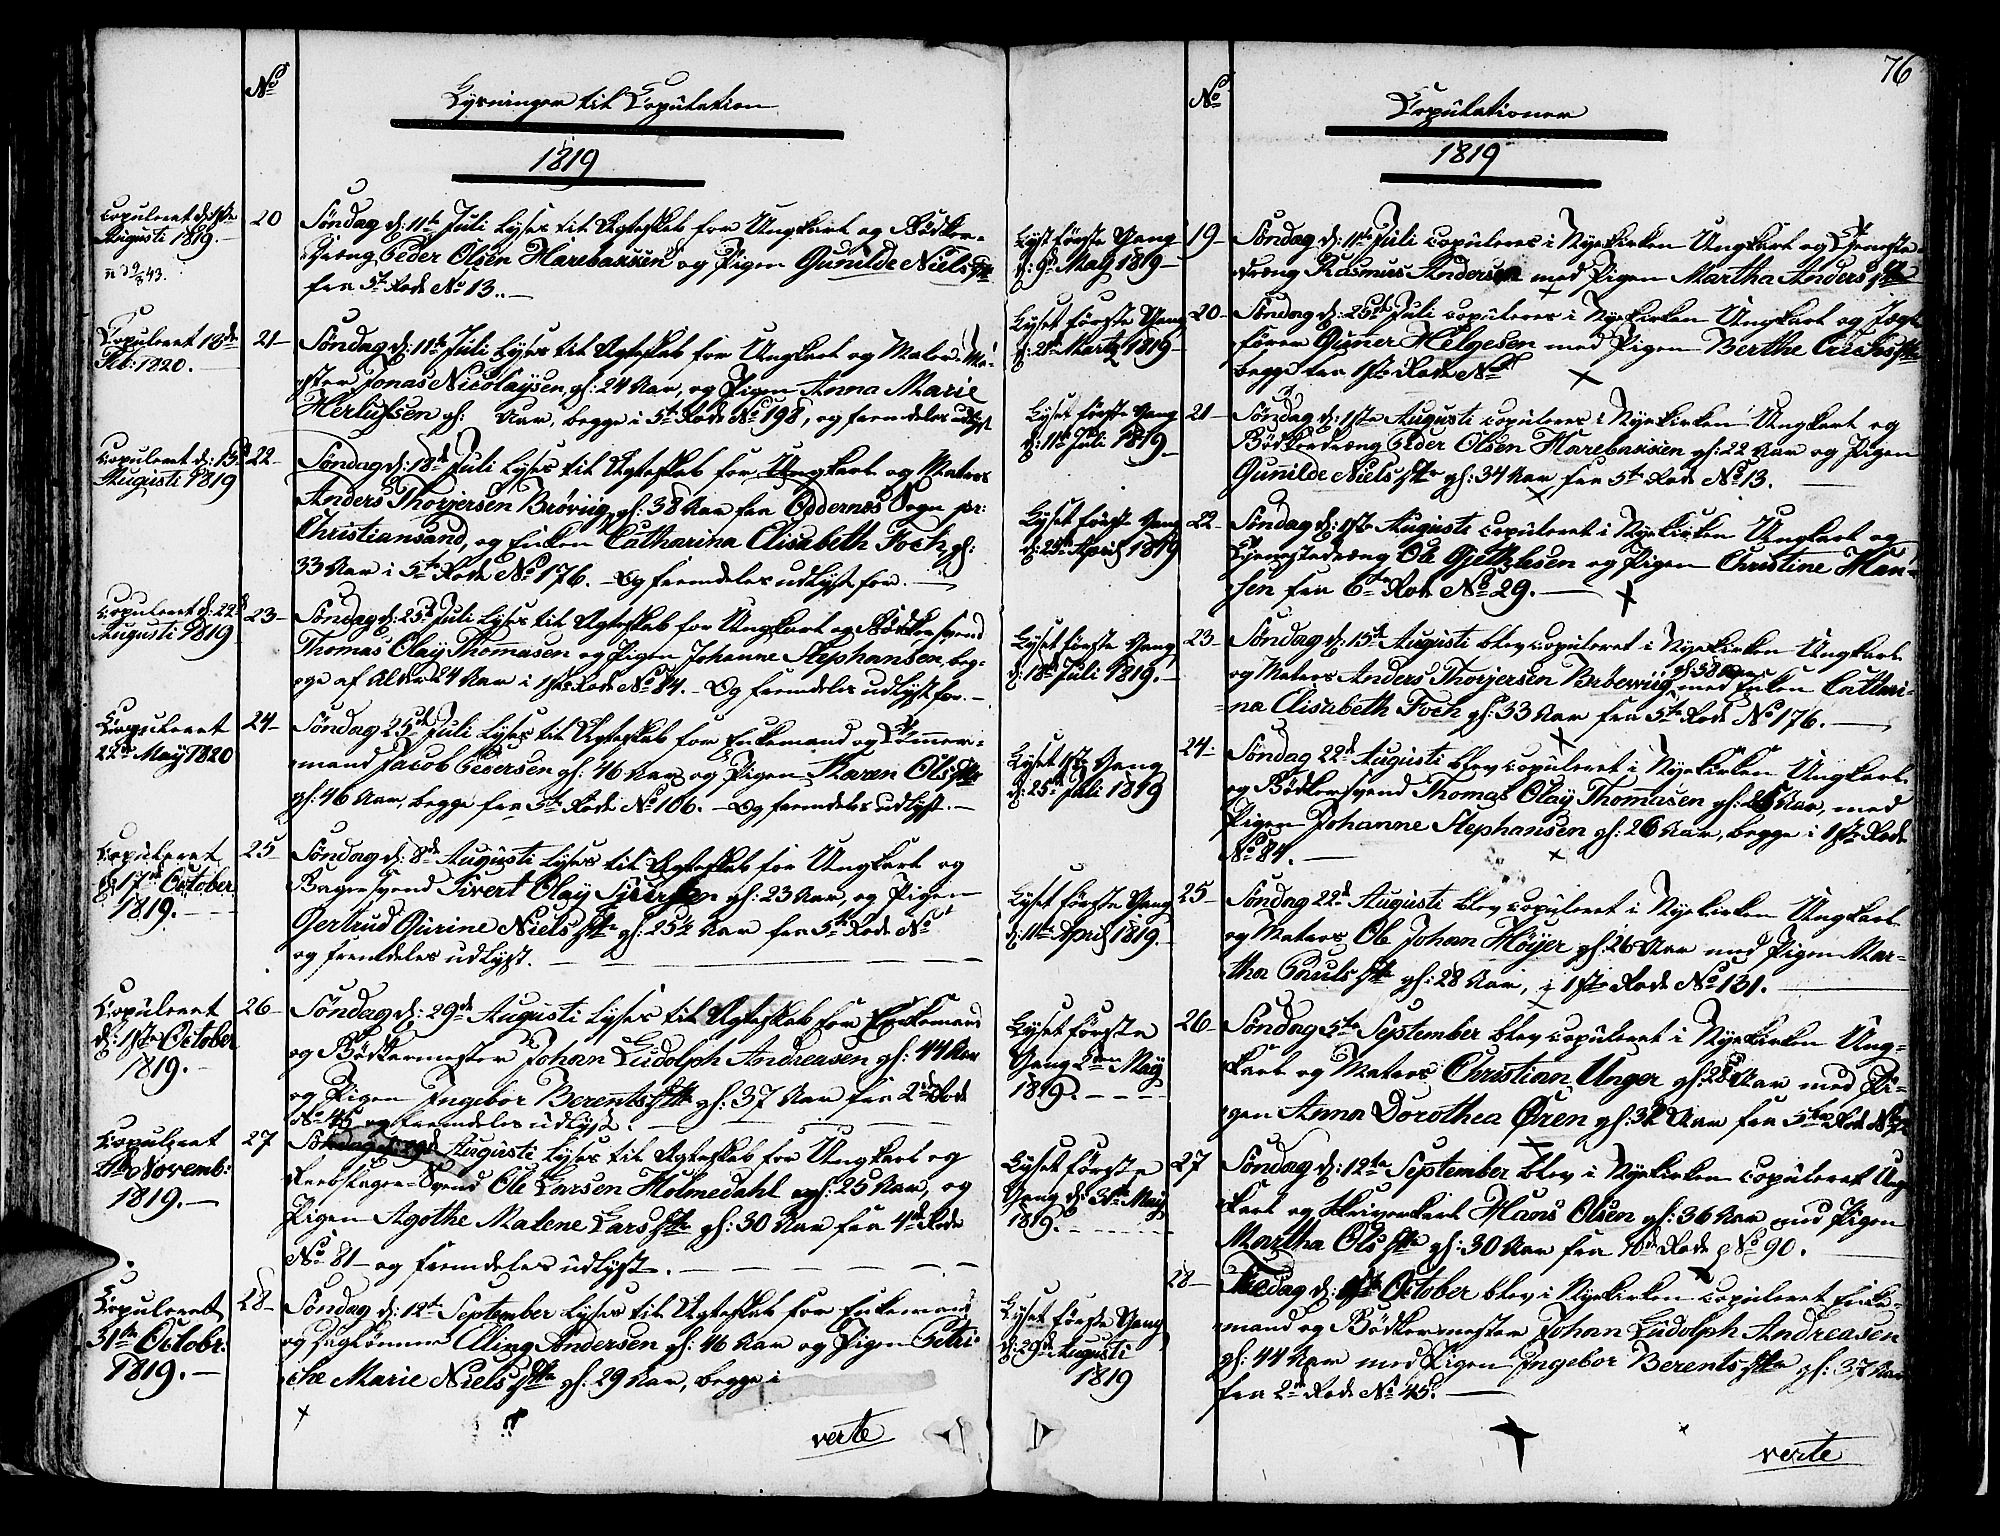 No
Lysninger til Copulation
1819
Copuleret d: 1ste
Augusti 1819.
20
Søndag d: 11te Juli lyses til Ægteskab for Ungkarl og Bødker-
dreng Peder Olsen Harebakken og Pigen Gunilde Nielsdtr
fra 5te Rode No 13.
Copuleret 13de
Feb: 1820.
21
Søndag d: 11te Juli lyses til Ægteskab for Ungkarl og Maler
Jonas Nicolaysen, gl: 24 Aar, og Pigen Anna Marie
Herlufsen gl: Aar, begge i 5te Rode No 198, og fremdeles udlyst
Copuleret d: 15de
Augusti 1819
22
Søndag d: 18de Juli lyses til Ægteskab for Ungkarl og Matros
Anders Thorjersen Brøvig, gl: 38 Aar fra Oddernes Sogn pr:
Christiansand, og Enken Catharina Elisabeth Foch, gl:
33 Aar i 5te Rode No 176. Og fremdeles udlyst for.
Copuleret d: 22de
Augusti 1819
23
Søndag d: 25de Juli lyses til Ægteskab for Ungkarl og Bødkersvend
Thomas Olay Thomasen og Pigen Johanne Stephansen, beg-
ge af Alder 24 Aar i 1ste Rode No 84. Og fremdeles udlyst for.
Copuleret
22de May 1820
24
Søndag 25de Juli lyses til Ægteskab for Enkemand og Tømmer-
mand Jacob Pedersen gl: 46 Aar og Pigen Karen Olsdtr
gl: 46 Aar, begge fra 5te Rode No 106. Og fremdeles udlyst.
Copuleret
d: 17de October
1819.
25
Søndag d: 8de Augusti lyses til Ægteskab for Ungkarl og
Bagersvend Sivert Olay gl: 23 Aar, og Pigen
Gertrud Gurine Nielsdtr gl: 25½ Aar fra 5te Rode No
og fremdeles udlyst.
Copuleret
d: 1ste October
1819.
26
Søndag d: 29de Augusti lyses til Ægteskab for Enkemand
og Bødkermester Johan Ludolph Andreasen gl: 44 Aar
og Pigen Ingebor Berentsdtr gl: 37 Aar fra 2den Rode
No 45 og fremdeles udlyst.
Copuleret
Novemb:
1819.
27
Søndag d: 29de Augusti lyses til Ægteskab for Ungkarl og
Reebslager-Svend Ole Larsen Holmedahl gl: 25 Aar, og
Pigen Agothe Malene Larsdtr gl: 30 Aar fra 4de Rode
No 81 og fremdeles udlyst.
Copuleret
31te Octobr:
1819.
28
Søndag d: 12te September lyses til Ægteskab for Enkemand
og Elling Andersen gl: 46 Aar og Pigen Petri-
che Marie Nielsdtr gl: 29 Aar, begge i
verte
76
No
Copulationer
1819
Lyst første Gang
d: 9de May 1819
19
Søndag d: 11te Juli copuleres i Nyekirken Ungkarl og Tieneste-
dreng Rasmus Andersen med Pigen Martha Andersdtr
Lyset første Gang
d: 21de Marty 1819
20
Søndag d: 25de Juli copuleres i Nyekirken Ungkarl og Jægt-
fører Guner Helgesen med Pigen Berthe
begge fra 1ste Rode No
Lyset første Gang
d: 11te Juli 1819
21
Søndag d: 1ste Augusti copuleres i Nyekirken Ungkarl og
Bødkerdreng Peder Olsen Harebakken gl: 22 Aar og Pigen
Gunilde Nielsdtr gl: 34 Aar fra 5te Rode No 13.
Lyset første Gang
d: 25de April 1819
22
Søndag d: 1ste Augusti copuleret i Nyekirken Ungkarl og
Tienestedreng Ole og Pigen Christine Han-
sen fra 6te Rode No 29.
Lyset første Gang
d: 18de Juli 1819.
23
Søndag d: 15de Augusti blev copuleret i Nyekirken Ungkarl
og Matros Anders Thorjersen gl: 38 Aar med Enken Cathari-
na Elisabeth Foch gl: 33 Aar fra 5te Rode No 176.
Lyset 1ste Gang
d: 25de Juli 1819
24
Søndag 22de Augusti blev copuleret i Nyekirken Ungkarl
og Bødkersvend Thomas Olay Thomasen gl: Aar, med
Pigen Johanne Stephansen gl: 26 Aar, begge i 1ste Rode
No 84.
Lyset første Gang
d: 11te April 1819.
25
Søndag 22de Augusti blev copuleret i Nyekirken Ungkarl
og Matros Ole Johan Höyer gl: 26 Aar med Pigen Mar-
tha gl: 28 Aar, i 1ste Rode No 131.
Lyset første
Gang 2den May
1819.
26
Søndag 5te September blev copuleret i Nyekirken Ung-
karl og Matros Christian Unger gl: 28 Aar med Pi-
gen Anna Dorothea Øren gl: 32 Aar fra 5te Rode
Lyset første
Gang d: 31te May
1819.
27
Søndag d: 12te September blev i Nyekirken copuleret Ung-
karl og Skriverkarl Hans Olsen gl: 36 Aar med Pigen
Martha Olsdtr gl: 30 Aar fra 10de Rode No 90.
Lyset første Gang
d: 29de Augusti
1819
28
Fredag d: 1ste October blev i Nyekirken copuleret Enke-
mand og Bødkermester Johan Ludolph Andreasen
gl: 44 Aar med Pigen Ingebor Berentsdtr gl: 37 Aar
fra 2den Rode No 45.
verte